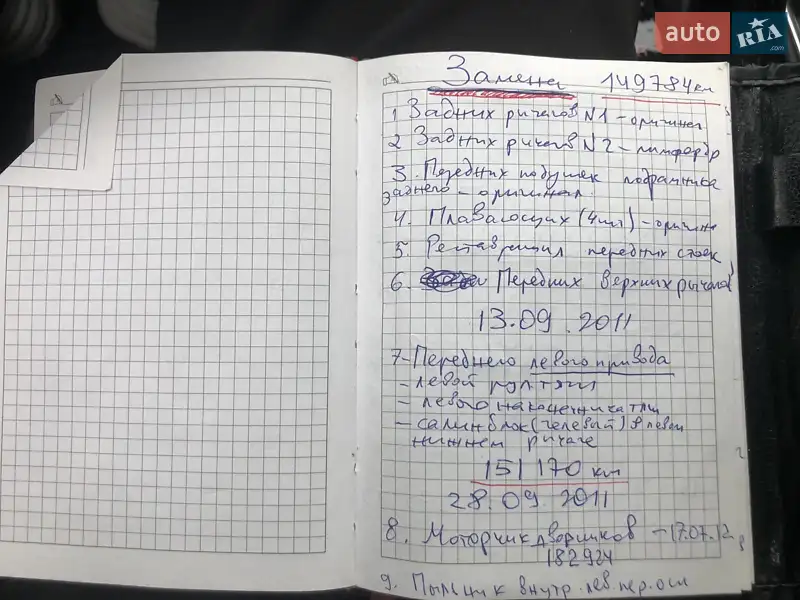 auto RIA .com
Замена 149784 км
1 Задних рычагов N1 - оригинал
2 Задних рычагов N2 - лимфердр
3. Передних подушек подрамника
заднего - оригинал
4. Плавающих (4шт) - оригин
5. Реставрация передних стоек
6. Передних верхних рычагов
13.09.2011
7 - Переднего левого привода
- левой рул тяги
- левого наконечника тяги
- салинблок (гелевый) в левом
нижнем рычаге
151 170 км
28.09.2011
8. Моторчик дворников - 17.07.12
182924
9. Пыльник внутр. лев. пер. оси